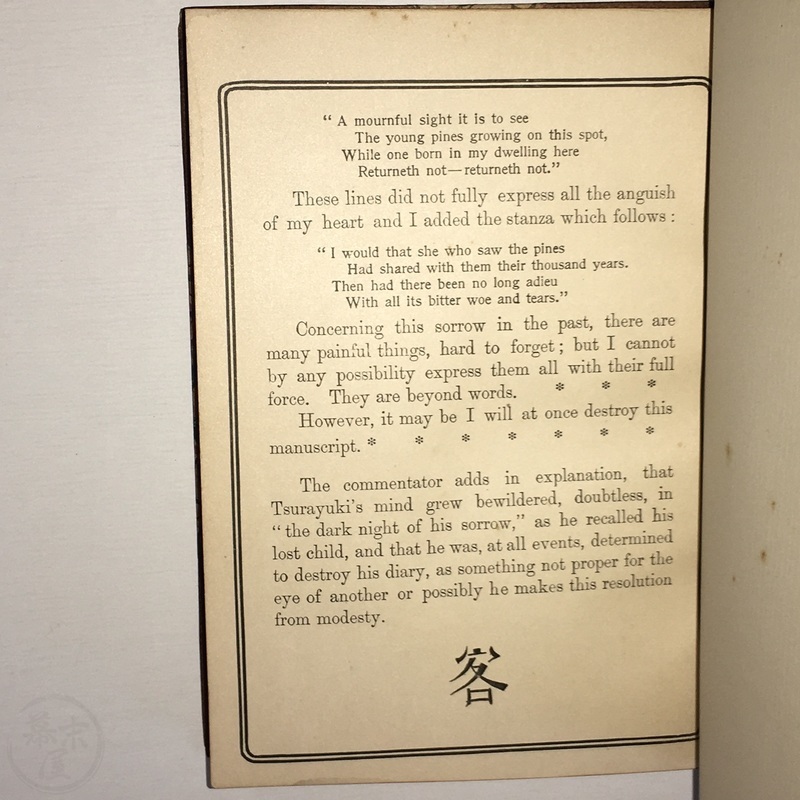 “ A mournful sight it is to see
The young pines growing on this spot,
While one born in my dwelling here
Returneth not—returneth not.”
These lines did not fully express all the anguish
of my heart and I added the stanza which follows :
“ I would that she who saw the pines
Had shared with them their thousand years.
Then had there been no long adieu
With all its bitter woe and tears.”
Concerning this sorrow in the past, there are
many painful things, hard to forget ; but I cannot
by any possibility express them all with their full
force. They are beyond words. * * *
However, it may be I will at once destroy this
manuscript. * * * * * * *
The commentator adds in explanation, that
Tsurayuki’s mind grew bewildered, doubtless, in
“ the dark night of his sorrow,” as he recalled his
lost child, and that he was, at all events, determined
to destroy his diary, as something not proper for the
eye of another or possibly he makes this resolution
from modesty.
客
幕末屋